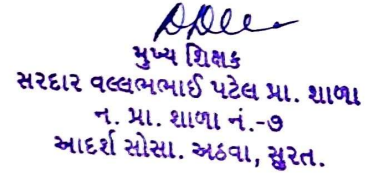 મુખ્ય શિક્ષક
સરદાર વલ્લભભાઈ પટેલ પ્રા. શાળા
ન. પ્રા. શાળા નં.-૭
આદર્શ સોસા. અઠવા, સુરત.